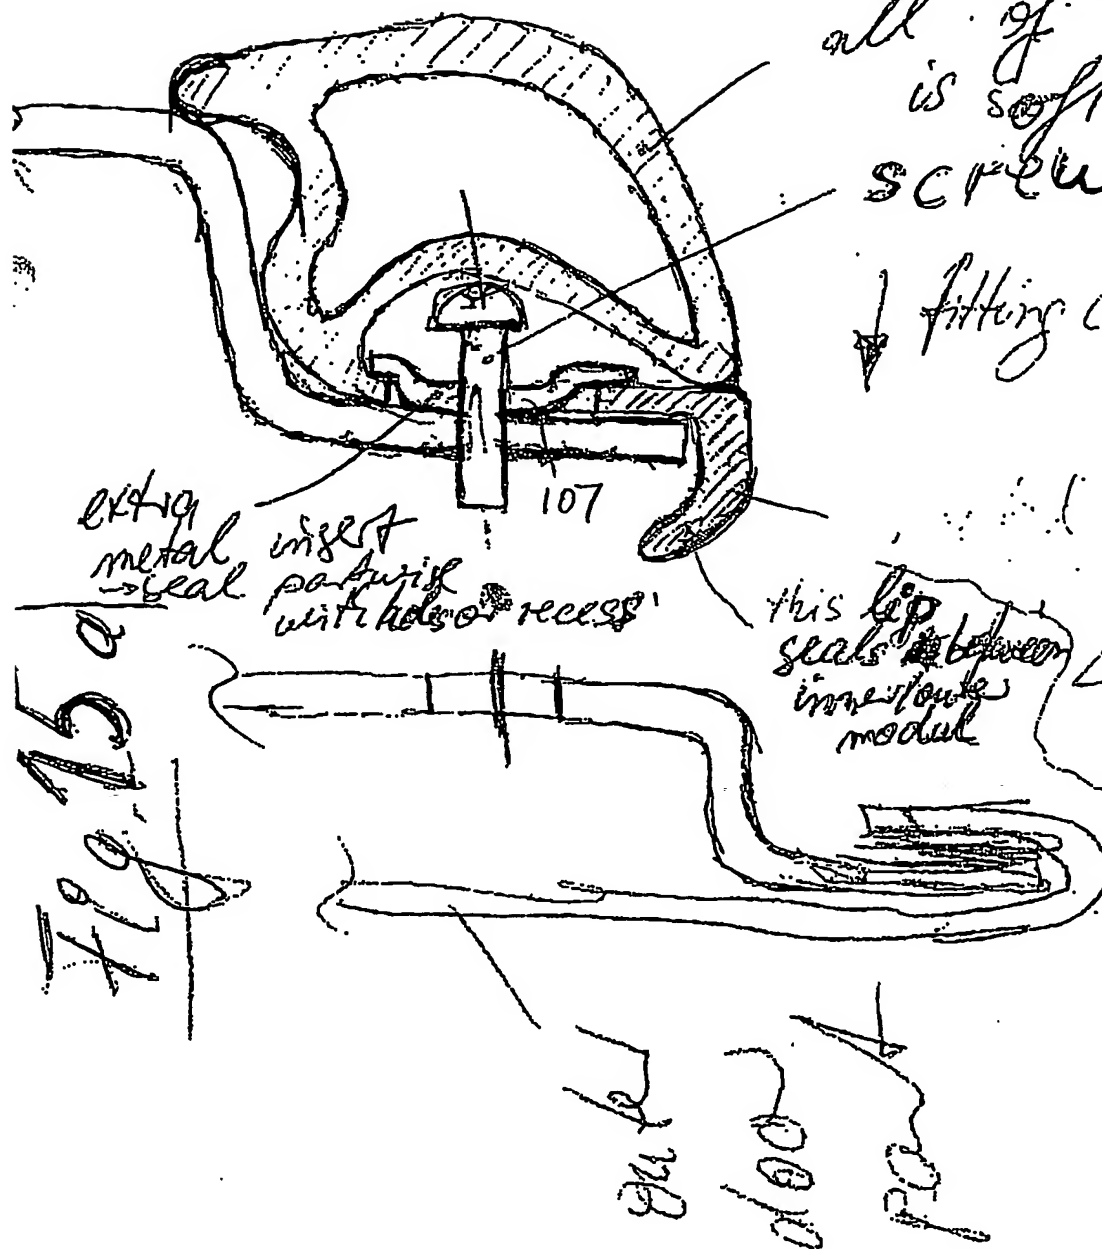 all of
is soft
screw
fitting
107
extra
metal insert
→ seal partwise
with holes or recess
this lip
seals between
inner/outer
modul
Fig. 15 a
door